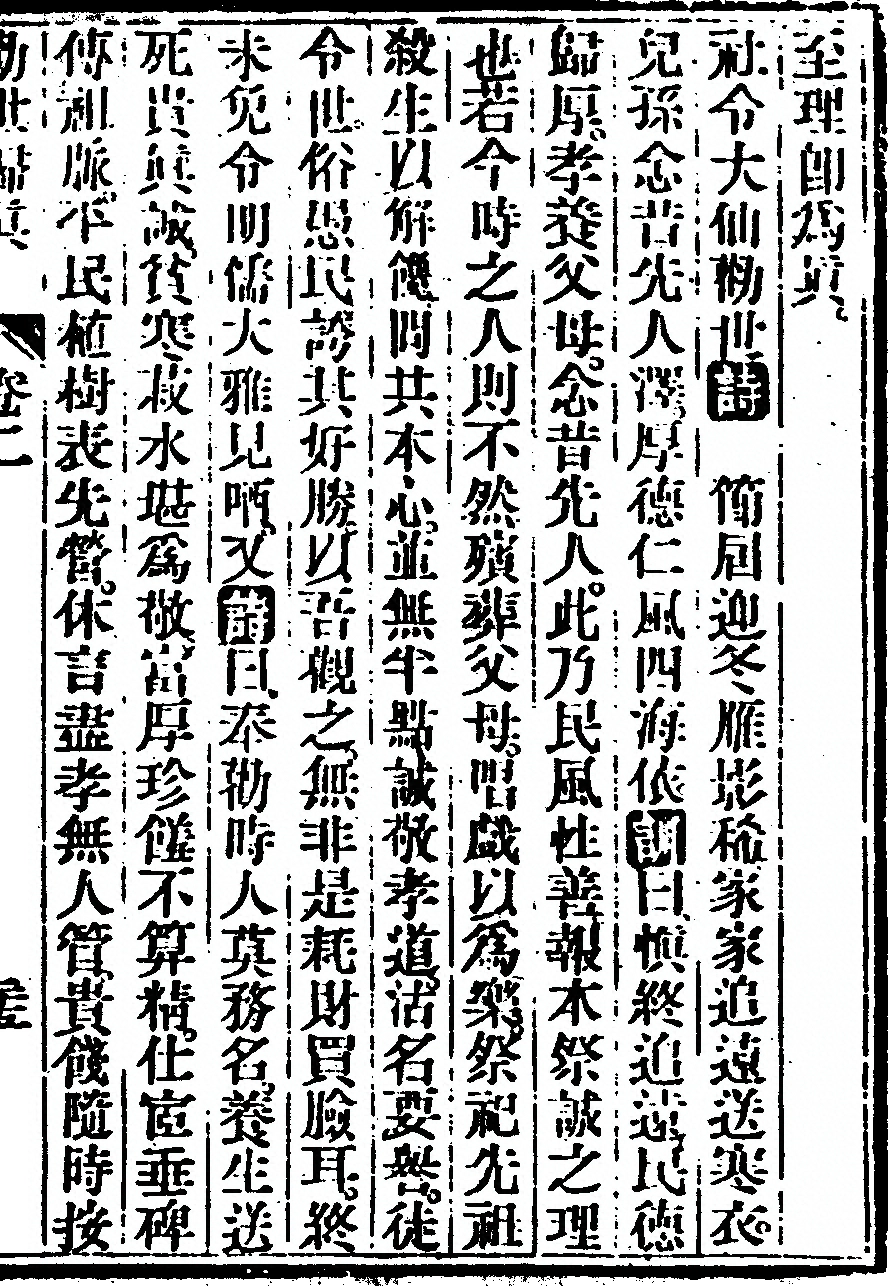 至理卽爲眞
社令大仙勸世詩　節屆迎冬雁影稀家家追遠送寒衣
兒孫念昔先人澤厚德仁風四海依詞曰愼終追遠民德
歸厚孝養父母念昔先人此乃民風性善報本祭誠之理
也若今時之人則不然殯葬父母唱戲以爲樂祭祀先祖
殺生以解饞問其本心並無半點誠敬孝道沽名要譽徒
令世俗愚民誇其好勝以吾觀之無非是耗財買臉耳終
未免令明儒大雅見哂又詩曰奉勸時人莫務名養生送
死貴眞誠貧寒菽水堪爲敬富厚珍饈不算精仕宦垂碑
傳祖脈平民植樹表先塋休言盡孝無人管貴餞隨時按
勸世歸眞　卷二